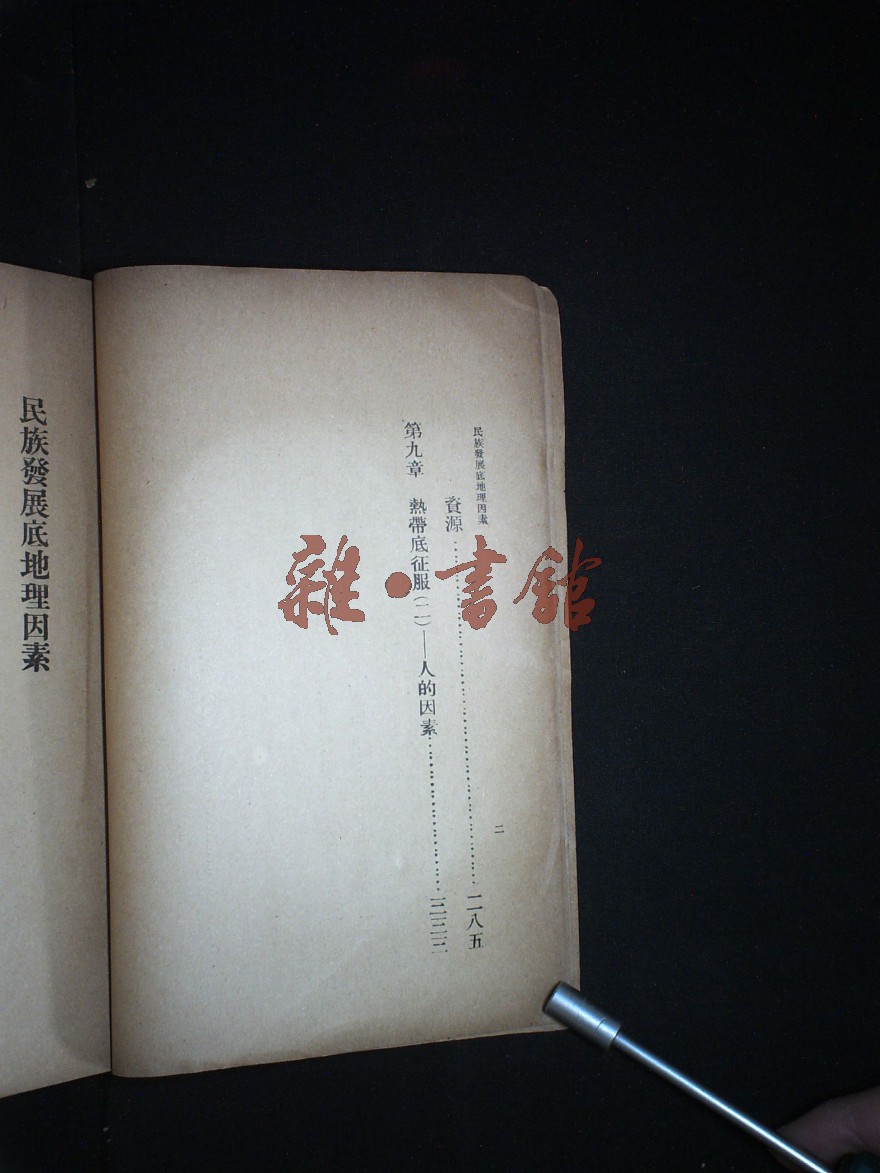 民族發展底地理因素
二
資源……………………………二八五
第九章　熱帶底征服(二)——人的因素……………
民族發展底地理因素
雜·書館